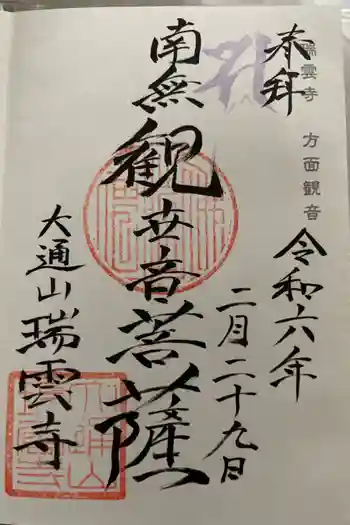 奉拝
瑞雲寺 方面観音
令和六年
二月二十九日
南無観世音菩薩
大通山瑞雲寺